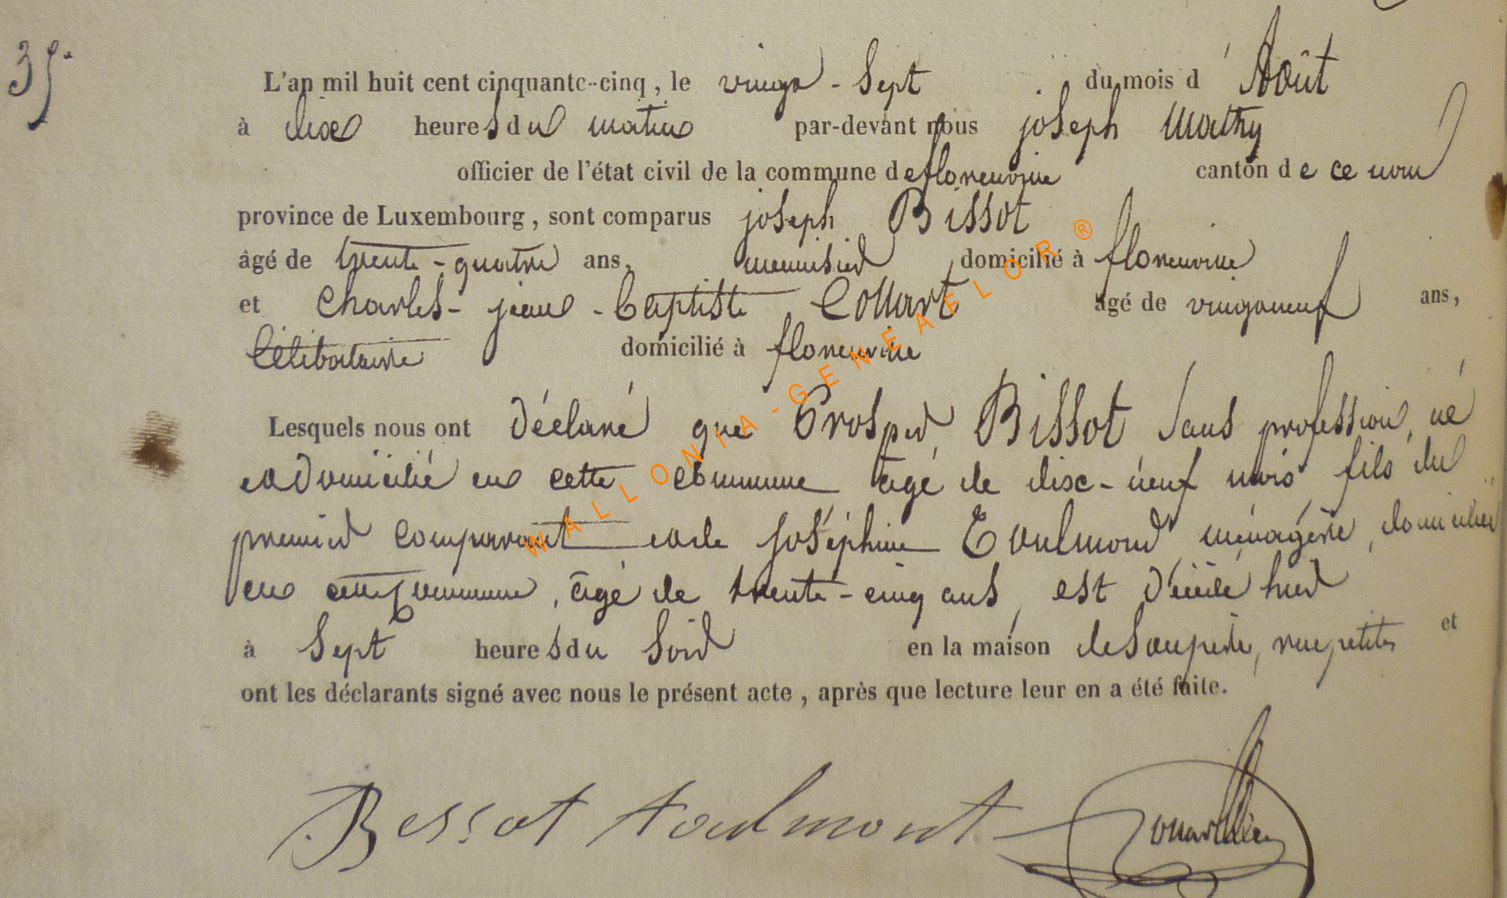 35.
L'an mil huit cent cinquante-cinq, le vingt-sept du mois d'Août
à dix heures du matin par-devant nous joseph Mathy
officier de l'état civil de la commune de florenville canton de ce nom
province de Luxembourg, sont comparus joseph Bissot
âgé de trente-quatre ans, menuisier domicilié à florenville
et Charles-jean-Baptiste Collart âgé de vingt neuf ans,
Célibataire domicilié à florenville
Lesquels nous ont déclaré que Prosper Bissot sans profession, né
et domicilié en cette commune âgé de dix-neuf mois, fils du
premier comparant et de joséphine Toulmond ménagère, domiciliée
en cette commune, âgé de trente-cinq ans, est décédé hier
à Sept heures du Soir en la maison de son père, rue petite et
ont les déclarants signé avec nous le présent acte, après que lecture leur en a été faite.
Bessot toulmont
WALLONIA-GENEALOR ®